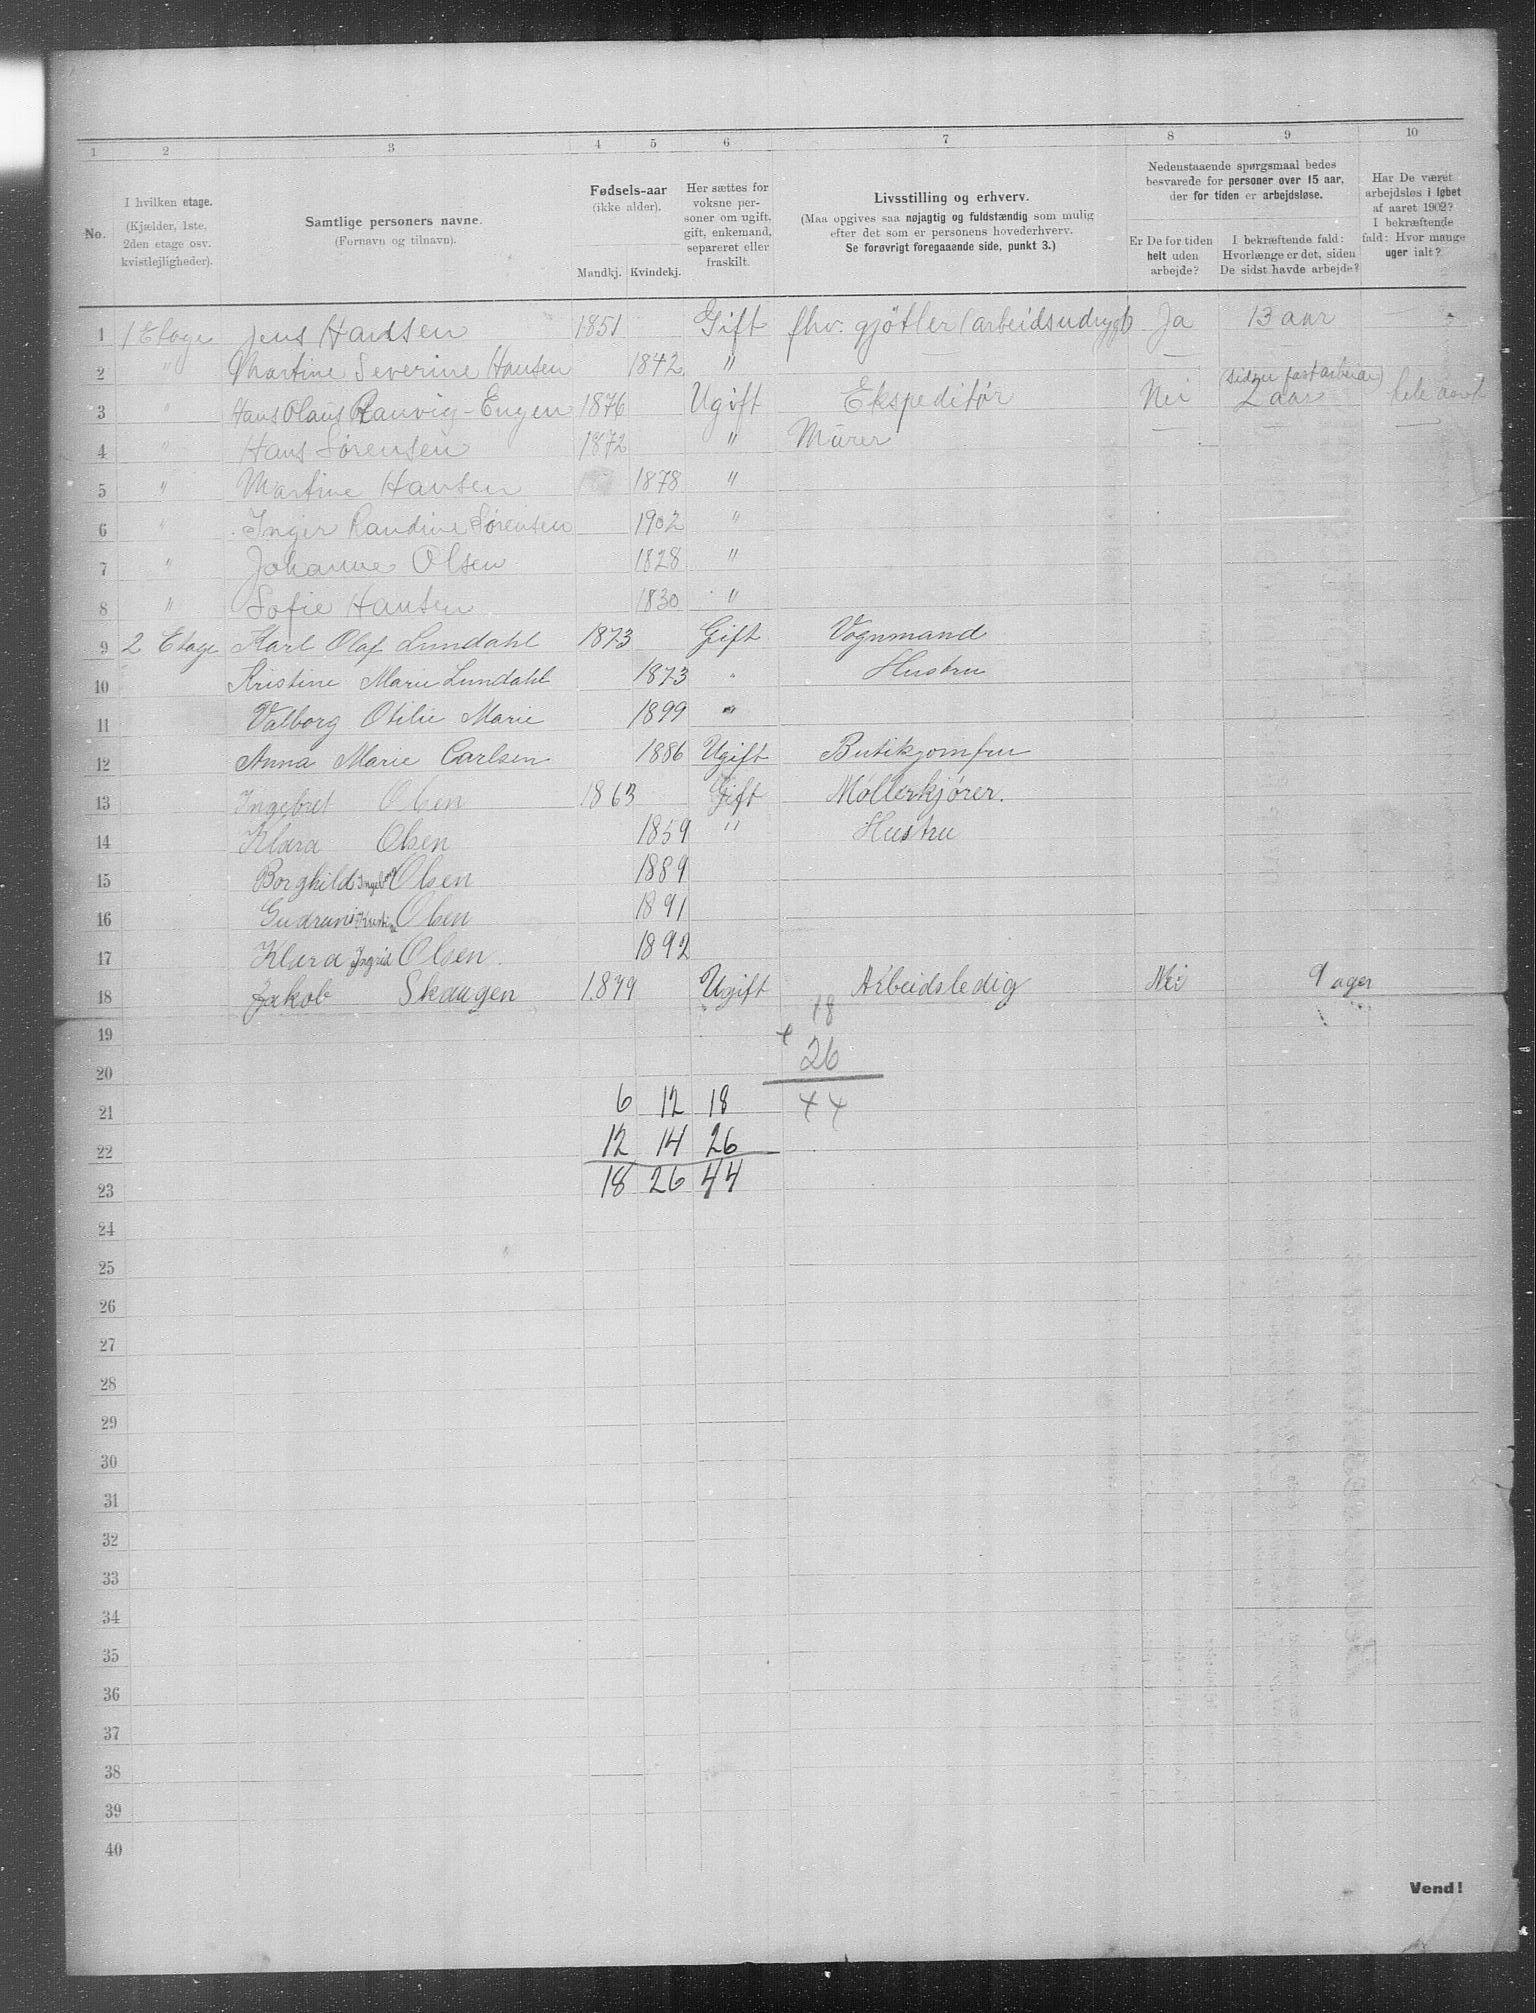 1 2 3 4 5 6 7 8 9 10
No.
I hvilken etage.
(Kjælder, 1ste,
2den etage osv.
kvistlejligheder).
Samtlige personers navne.
(Fornavn og tilnavn).
Fødsels-aar
(ikke alder).
Mandkj. Kvindekj.
Her sættes for
voksne per-
soner om ugift,
gift, enkemand,
separeret eller
fraskilt.
Livsstilling og erhverv.
(Maa opgives saa nøjagtig og fuldstændig som mulig
efter det som er personens hovederhverv.
Se forøvrigt foregaaende side, punkt 3.)
Nedenstaaende spørgsmaal bedes
besvarede for personer over 15 aar,
der for tiden er arbejdsløse.
Er De for tiden
helt uden
arbejde?
I bekræftende fald:
Hvorlænge er det, siden
De sidst havde arbejde?
Har De været
arbejdsløs i løbet
af aaret 1902?
I bekræftende
fald: Hvor mange
uger ialt?
1 1 Etage Jens Hansen 1851 Gift fhv. gjøtler (arbeidsudygt) Ja 13 aar —
2 " Martine Severine Hansen 1842 " — —
3 " Hans Olaus Ranvig-Engen 1876 Ugift Ekspeditør Nei (siden fast arbeide) 2 aar hele aaret
4 " Hans Sørensen 1872 " Murer — — —
5 " Martine Hansen 1878 "
6 " Inger Randine Sørensen 1902 "
7 " Johanne Olsen 1828 "
8 " Sofie Hansen 1830 "
9 2 Etage Karl Olaf Lundahl 1873 Gift Vognmand
10 Kristine Marie Lundahl 1873 " Hustru
11 Valborg Otilie Marie 1899 "
12 Anna Marie Carlsen 1886 Ugift Butikjomfru
13 Ingebret Olsen 1863 Gift Møllerkjører.
14 Klara Olsen 1859 " Hustru
15 Borghild Ingeb Olsen 1889
16 Gudrun Kristi Olsen 1891
17 Klara Ingrid Olsen 1892
18 Jakob Skaugen 1879 Ugift Arbeidsledig Nei 9 ager
18
19
+ 26
20
44
21 6 12 18
22 12 14 26
23 18 26 44
24
25
26
27
28
29
30
31
32
33
34
35
36
37
38
39
40
Vend!